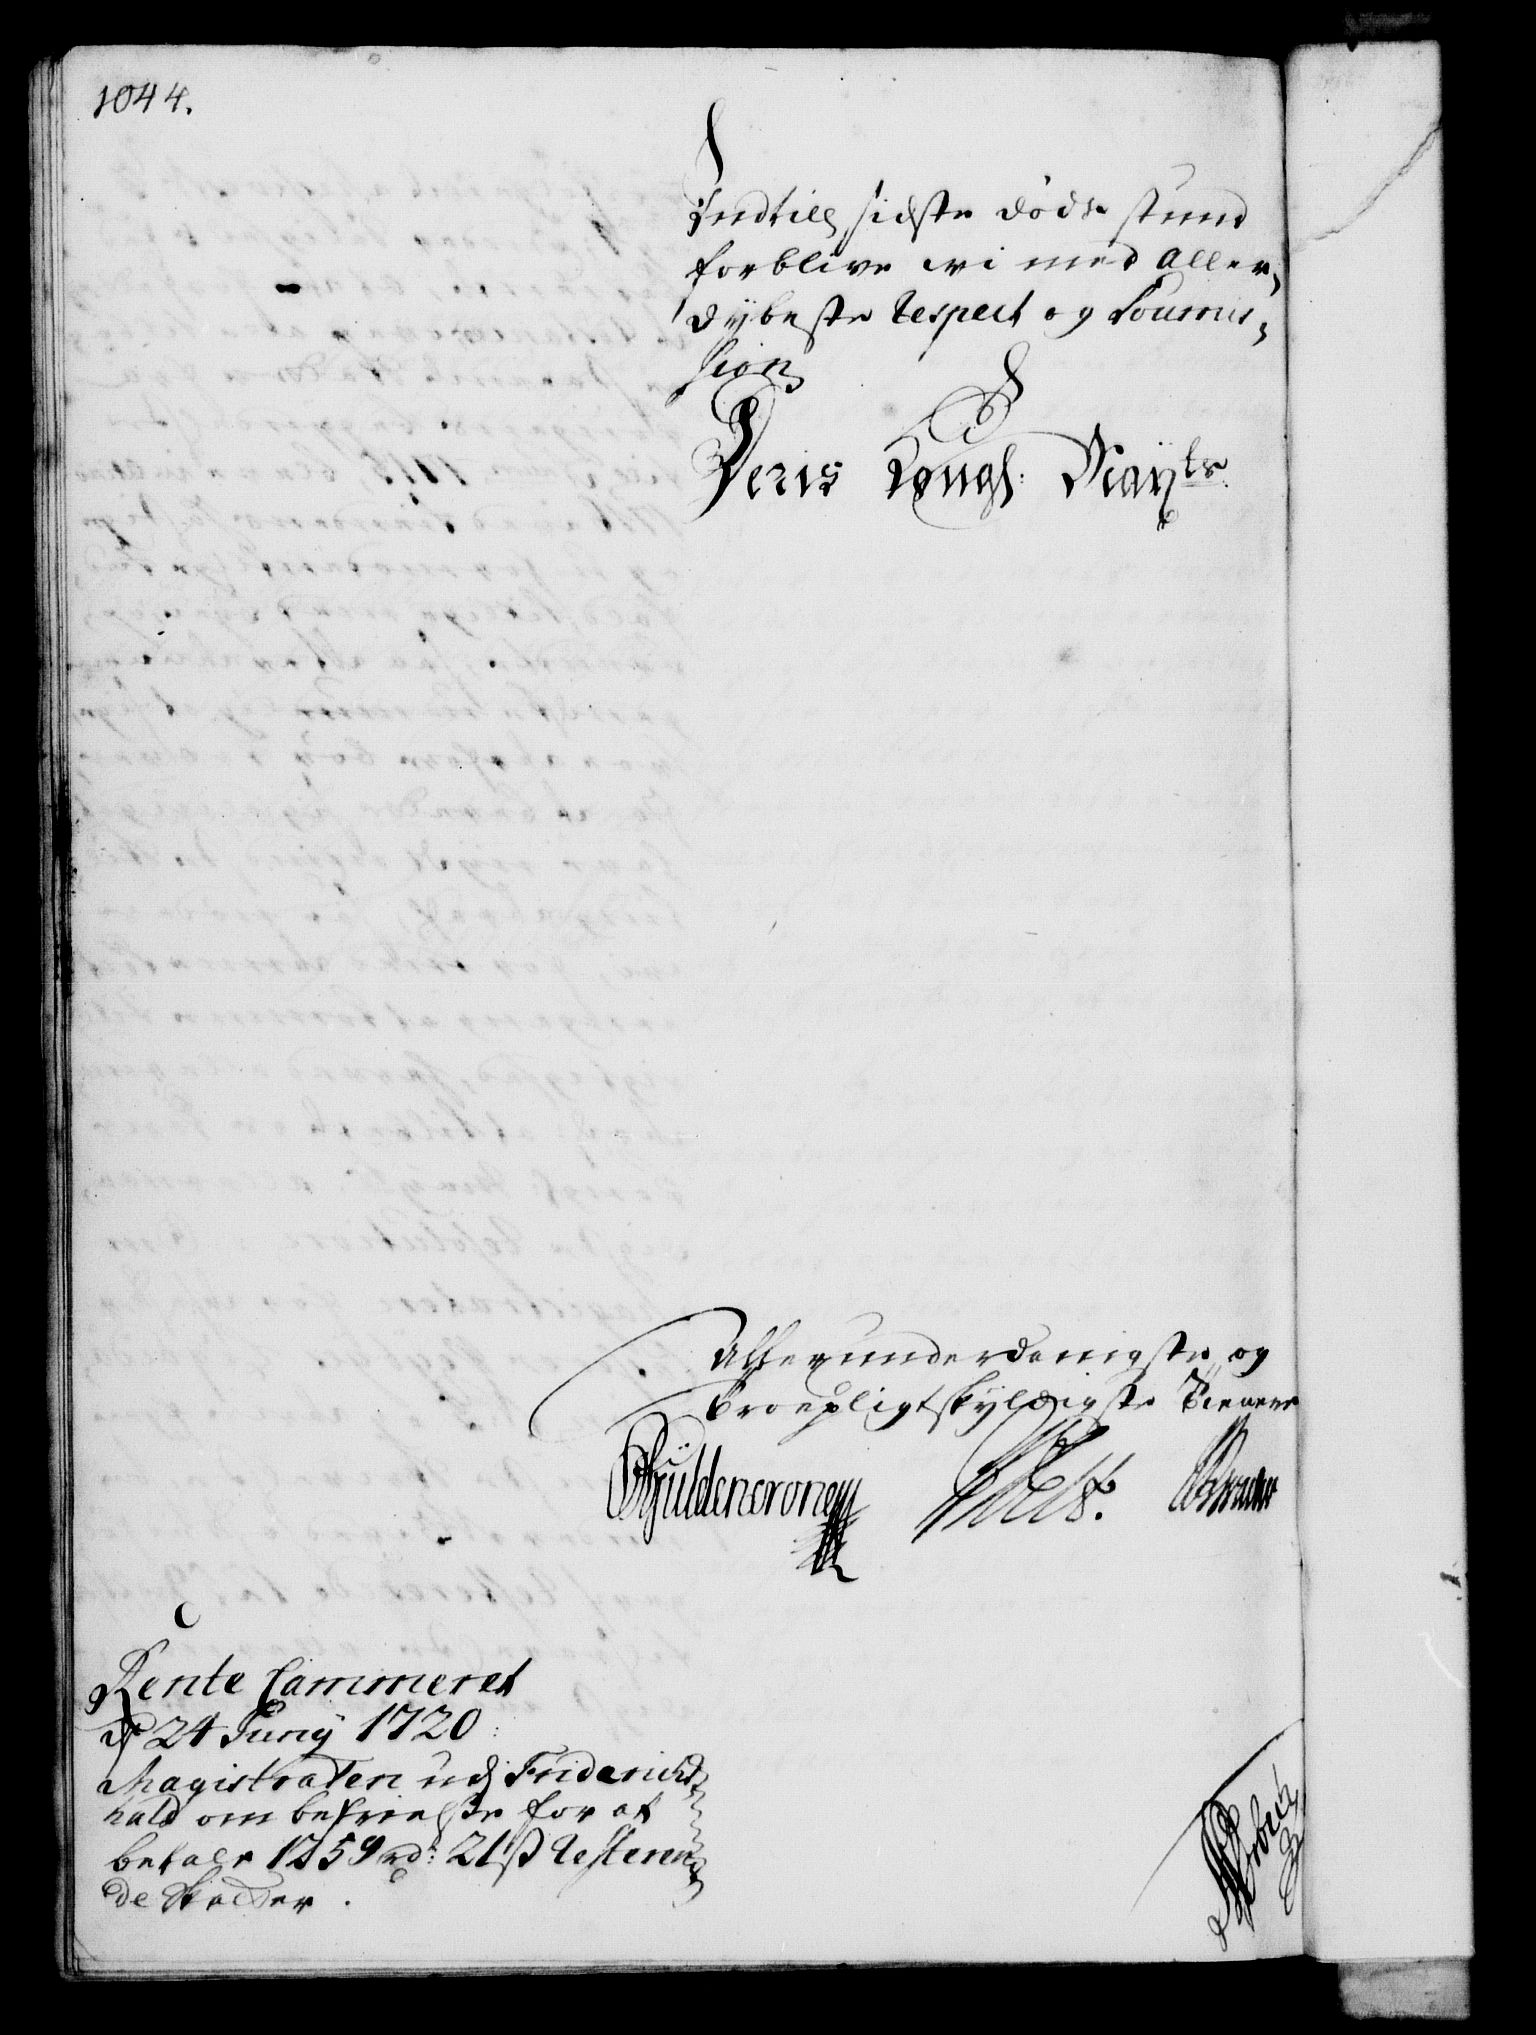 1044.
Indtill sidste döds stund
forblive wi med aller,
dÿbeste Respect og Soumis,
sion
Deris Kongl: Maÿts
Allerunderdanigste og
troepligtskyldigste Tienere
Güldencrone
Rente Cammeret
d 24 Junij 1720
Magistraten udj Friderichs
hald om befrielse for at
betale 1259 rd: 21 ß Resteren
de Skatter.